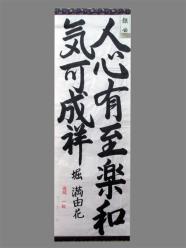 人心有至樂和
気可成祥
堀 満由花